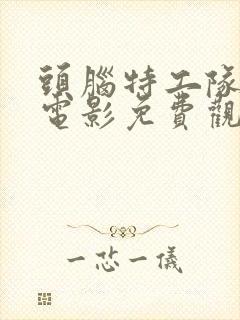 頭腦特工隊
電影免費觀
一恣一儀